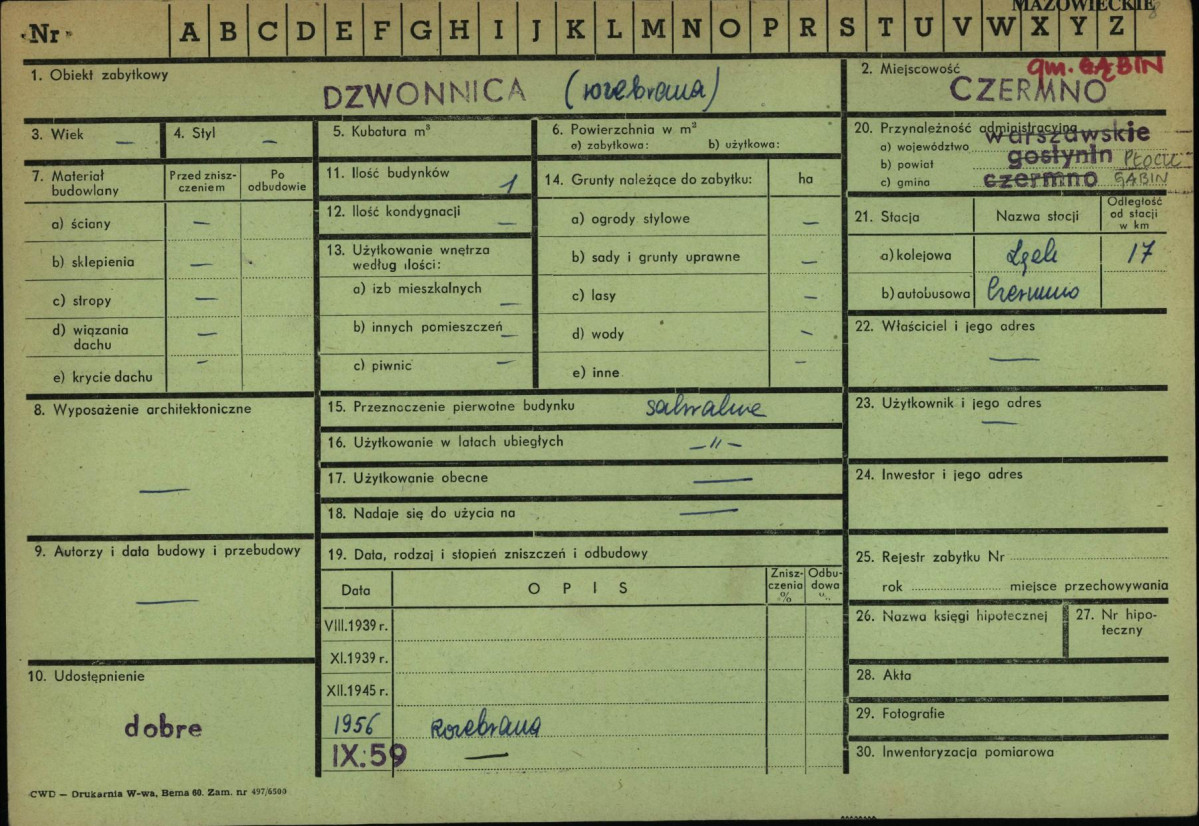 MAZOWIECKIE
Nr A B C D E F G H I J K L M N O P R S T U V W X Y Z
1. Obiekt zabytkowy
DZWONNICA (rozebrana)
2. Miejscowość
gm. GĄBIN
CZERMNO
3. Wiek —
4. Styl —
5. Kubatura m³
6. Powierzchnia w m²
a) zabytkowa: b) użytkowa:
20. Przynależność administracyjna
a) województwo warszawskie
b) powiat gostynin PŁOCK
c) gmina czermno GĄBIN
7. Materiał budowlany
Przed zniszczeniem
Po odbudowie
a) ściany —
b) sklepienia —
c) stropy —
d) wiązania dachu —
e) krycie dachu —
11. Ilość budynków 1
12. Ilość kondygnacji —
13. Użytkowanie wnętrza
według ilości:
a) izb mieszkalnych —
b) innych pomieszczeń —
c) piwnic —
14. Grunty należące do zabytku: ha
a) ogrody stylowe —
b) sady i grunty uprawne —
c) lasy —
d) wody —
e) inne —
21. Stacja
Nazwa stacji
Odległość
od stacji
w km
a) kolejowa 17
b) autobusowa Czermno
22. Właściciel i jego adres
—
8. Wyposażenie architektoniczne
—
15. Przeznaczenie pierwotne budynku sakralne
16. Użytkowanie w latach ubiegłych —"—
17. Użytkowanie obecne —
18. Nadaje się do użycia na —
23. Użytkownik i jego adres
—
24. Inwestor i jego adres
9. Autorzy i data budowy i przebudowy
—
19. Data, rodzaj i stopień zniszczeń i odbudowy
Data
OPIS
Znisz-
czenia
%
Odbu-
dowa
%
VIII.1939 r.
XI.1939 r.
XII.1945 r.
1956 rozebrana
IX.59 —
25. Rejestr zabytku Nr
rok miejsce przechowywania
26. Nazwa księgi hipotecznej
27. Nr hipo-
teczny
10. Udostępnienie
dobre
28. Akta
29. Fotografie
30. Inwentaryzacja pomiarowa
CWD — Drukarnia W-wa, Bema 60. Zam. nr 497/6500